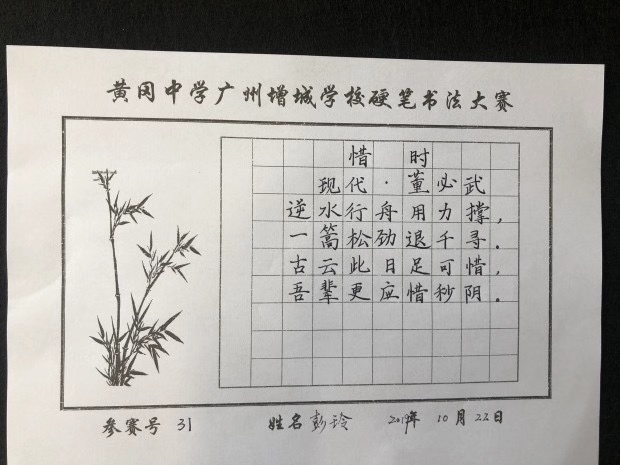 黄冈中学广州增城学校硬笔书法大赛
惜 时
现代·董必武
逆水行舟用力撑，
一篙松劲退千寻。
古云此日足可惜，
吾辈更应惜秒阴。
参赛号 31 姓名 彭玲 2019年 10月22日